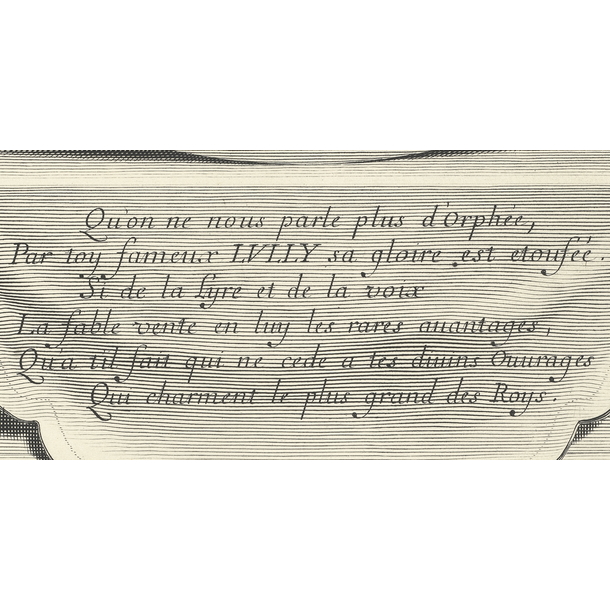 Qu'on ne nous parle plus d'Orphée,
Par toy fameux LVLLY sa gloire est etouféé.
Si de la Lyre et de la voix
La fable vente en luy les rares auantages,
Qu'a til fait qui ne cede a tes diuins Ouurages
Qui charment le plus grand des Roys.